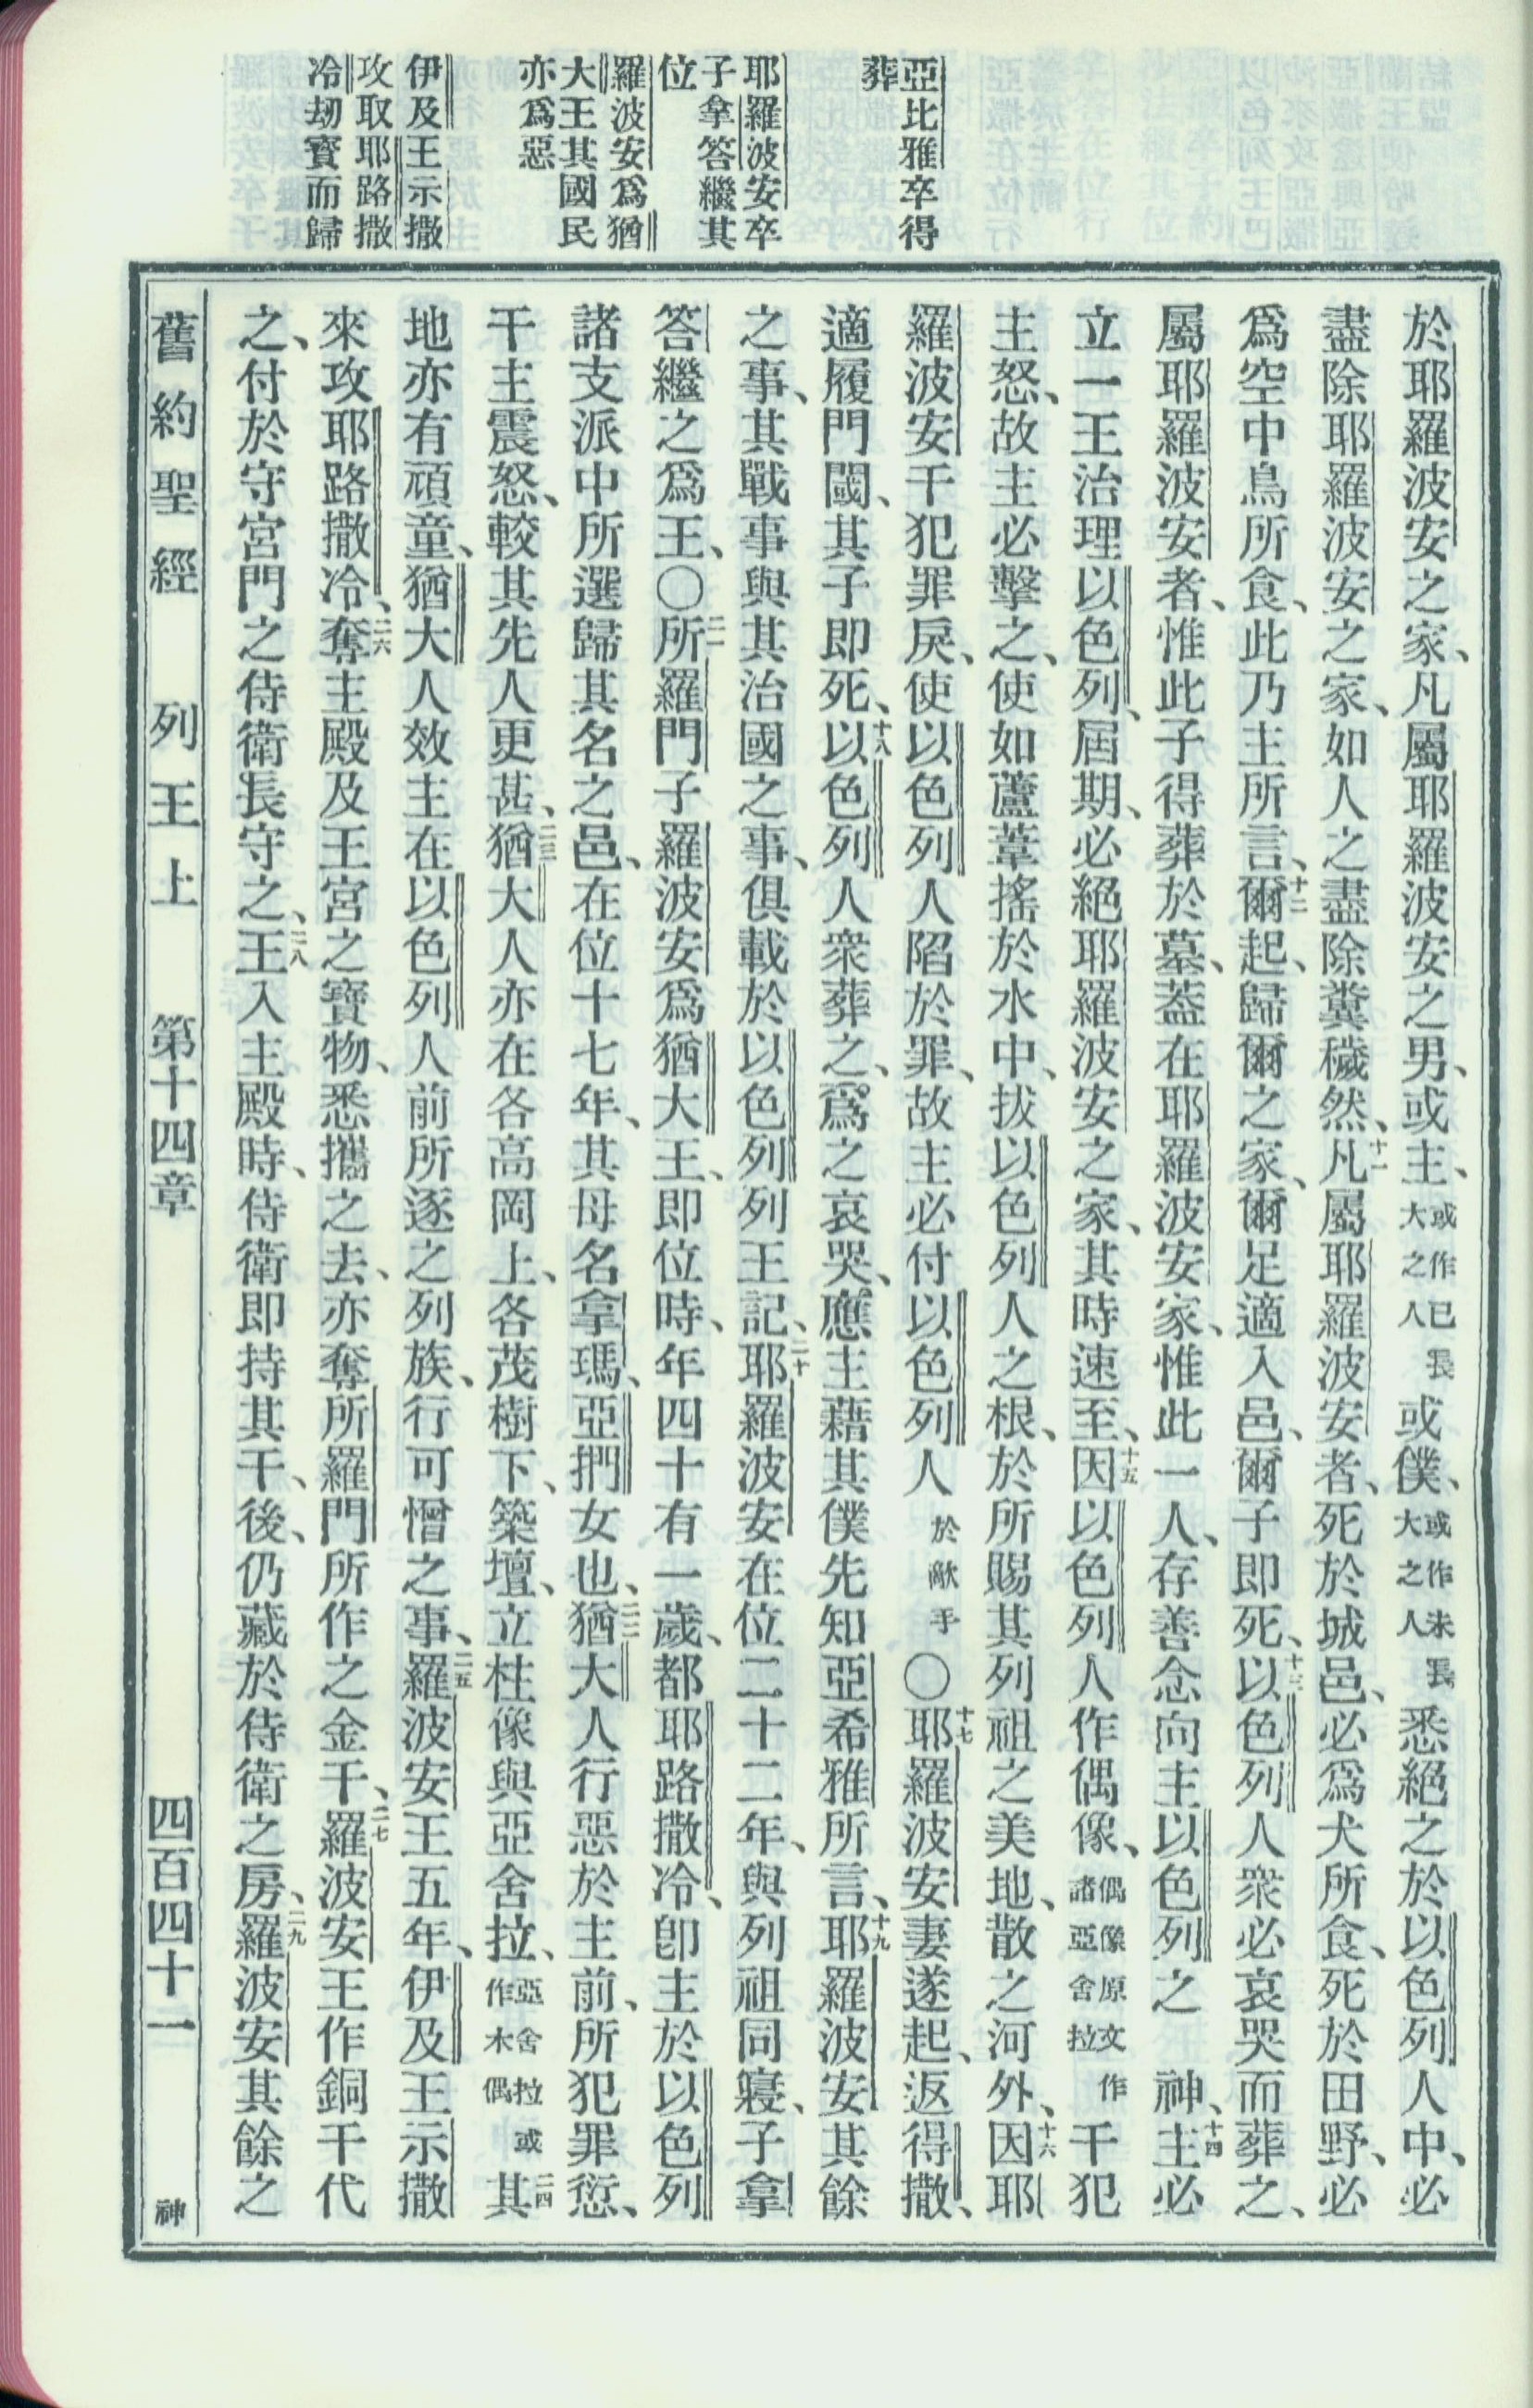 亞比雅卒得
葬
耶羅波安卒
子拿答繼其
位
羅波安爲猶
大王其國民
亦爲惡
伊及王示撒
攻取耶路撒
冷刧寶而歸
於耶羅波安之家、凡屬耶羅波安之男、或主、或作已長大之人或僕、或作未長大之人悉絕之於以色列人中、必
盡除耶羅波安之家、如人之盡除糞穢然、十一凡屬耶羅波安者、死於城邑、必爲犬所食、死於田野、必
爲空中鳥所食、此乃主所言、十二爾起、歸爾之家、爾足適入邑、爾子即死、十三以色列人衆必哀哭而葬之、
屬耶羅波安者、惟此子得葬於墓、蓋在耶羅波安家、惟此一人、存善念向主以色列之 神、十四主必
立一王治理以色列、屆期、必絕耶羅波安之家、其時速至、十五因以色列人作偶像、偶像原文作諸亞舍拉干犯
主怒、故主必擊之、使如蘆葦搖於水中、拔以色列人之根、於所賜其列祖之美地、散之河外、十六因耶
羅波安干犯罪戾、使以色列人陷於罪、故主必付以色列人於敵手〇十七耶羅波安妻遂起、返得撒、
適履門閾、其子即死、十八以色列人衆葬之、爲之哀哭、應主藉其僕先知亞希雅所言、十九耶羅波安其餘
之事、其戰事與其治國之事、俱載於以色列列王記、二十耶羅波安在位二十二年、與列祖同寢、子拿
答繼之爲王、〇二一所羅門子羅波安爲猶大王、即位時、年四十有一歲、都耶路撒冷、卽主於以色列
諸支派中所選歸其名之邑、在位十七年、其母名拿瑪、亞捫女也、二二猶大人行惡於主前、所犯罪愆、
干主震怒、較其先人更甚、二三猶大人亦在各高岡上、各茂樹下、築壇、立柱像與亞舍拉、亞舍拉或作木偶二四其
地亦有頑童、猶大人效主在以色列人前所逐之列族、行可憎之事、二五羅波安王五年、伊及王示撒
來攻耶路撒冷、二六奪主殿及王宮之寶物、悉攜之去、亦奪所羅門所作之金干、二七羅波安王作銅干代
之、付於守宮門之侍衛長守之、二八王入主殿時、侍衛即持其干、後、仍藏於侍衛之房、二九羅波安其餘之
舊約聖經 列王上 第十四章 四百四十一 神